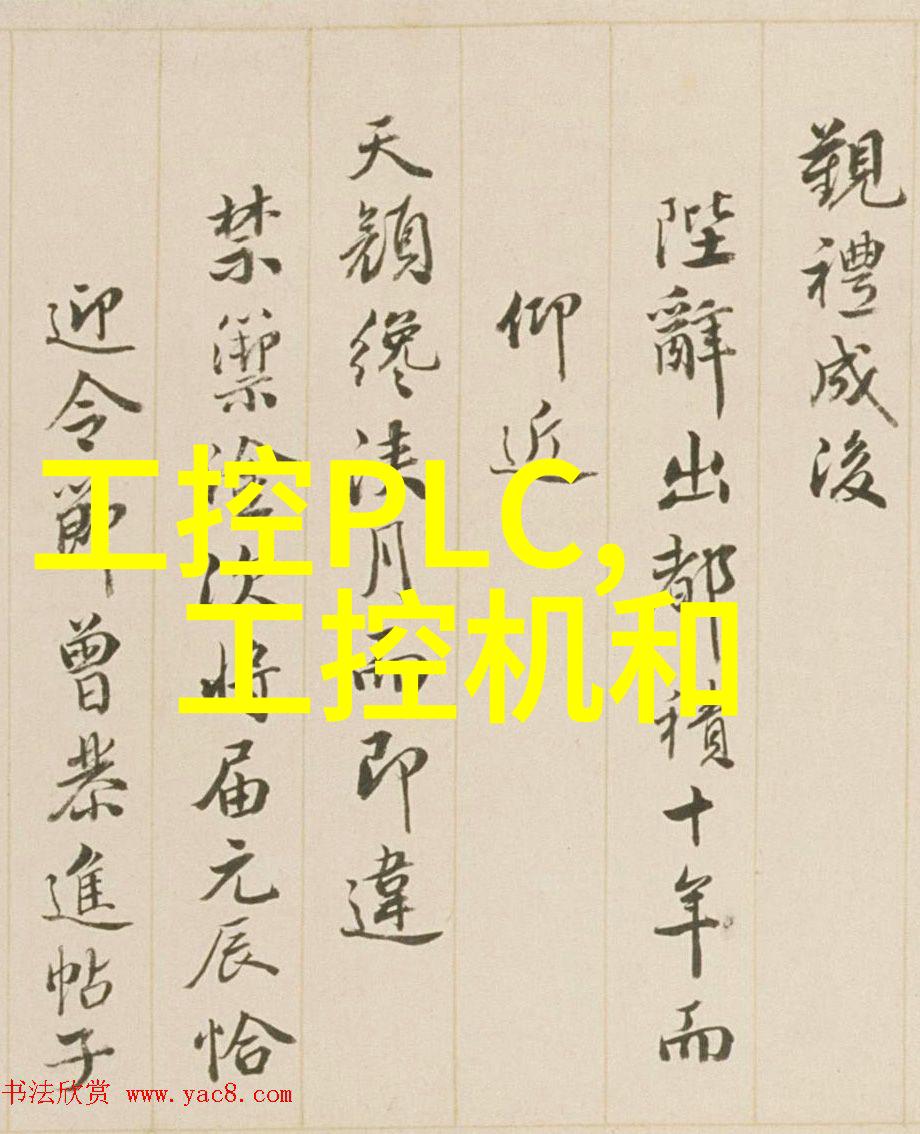 覲禮成後
陛辭出都積十年而
仰近
天顔纔浹月而即違
禁籞塗次將届元辰恰
迎令節曾恭進帖子
工控PLC,
工控机和
书法欣赏 www.yac8.com